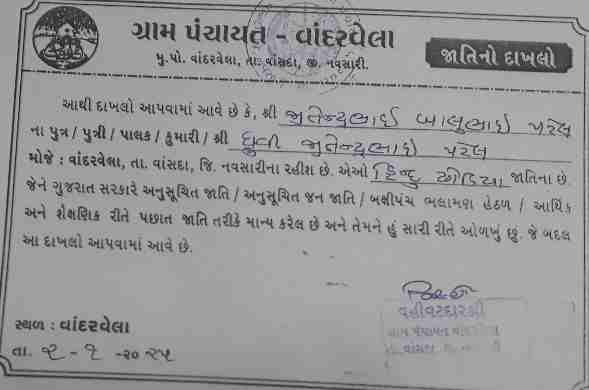 ગ્રામ પંચાયત - વાંદરવેલા
મુ.પો. વાંદરવેલા, તા. વાંસદા, જી. નવસારી.
જાતિનો દાખલો
આથી દાખલો આપવામાં આવે છે કે, શ્રી જીતેન્દ્રભાઇ બાલુભાઇ પટેલ
ના પુત્ર / પુત્રી / પાલક / કુમારી / શ્રી ધ્રુવી જીતેન્દ્રભાઇ પટેલ
મોજે : વાંદરવેલા, તા. વાંસદા, જિ. નવસારીના રહીશ છે. એઓ હિન્દુ ધોડિયા જાતિના છે.
જેને ગુજરાત સરકારે અનુસૂચિત જાતિ / અનુસૂચિત જન જાતિ / બક્ષીપંચ ભલામણ હેઠળ / આર્થિક
અને શૈક્ષણિક રીતે પછાત જાતિ તરીકે માન્ય કરેલ છે અને તેમને હું સારી રીતે ઓળખું છું. જે બદલ
આ દાખલો આપવામાં આવે છે.
વહીવટદારશ્રી
ગ્રામ પંચાયત વાંદરવેલા
તા. વાંસદા
સ્થળ : વાંદરવેલા
તા. ૨ - ૧ - ૨૦૨૫